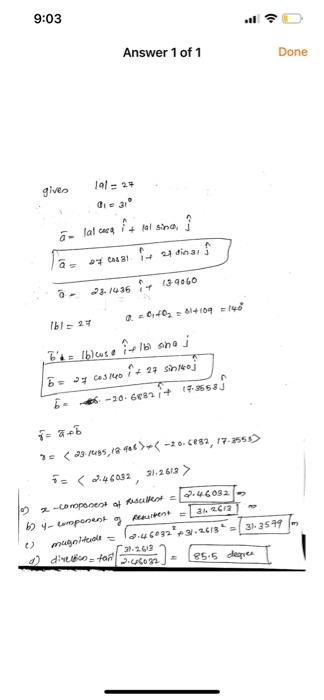 9:03
Answer 1 of 1
Done
given |a| = 27
θ1 = 31°
ā = |a| cosθ1 î + |a| sinθ1 ĵ
ā = 27 cos31 î + 27 sin31 ĵ
ā = 23.1435 î + 13.9060
|b| = 27 θ = θ1+θ2 = 31+109 = 140°
b̄ = |b| cosθ î + |b| sinθ j
b̄ = 27 cos140 î + 27 sin140 ĵ
b̄ = -20.6832 î + 17.3553 ĵ
r̄ = ā + b̄
r = < 23.1435, 13.906 > + < -20.6832, 17.3553 >
r̄ = < 2.46032, 31.2613 >
a) x-component of resultent = 2.46032 m
b) y-component of resultent = 31.2613 m
c) magnitude = √2.46032² + 31.2613² = 31.3579 m
d) direction = tan⁻¹ [31.2613 / 2.46032] = 85.5 degree